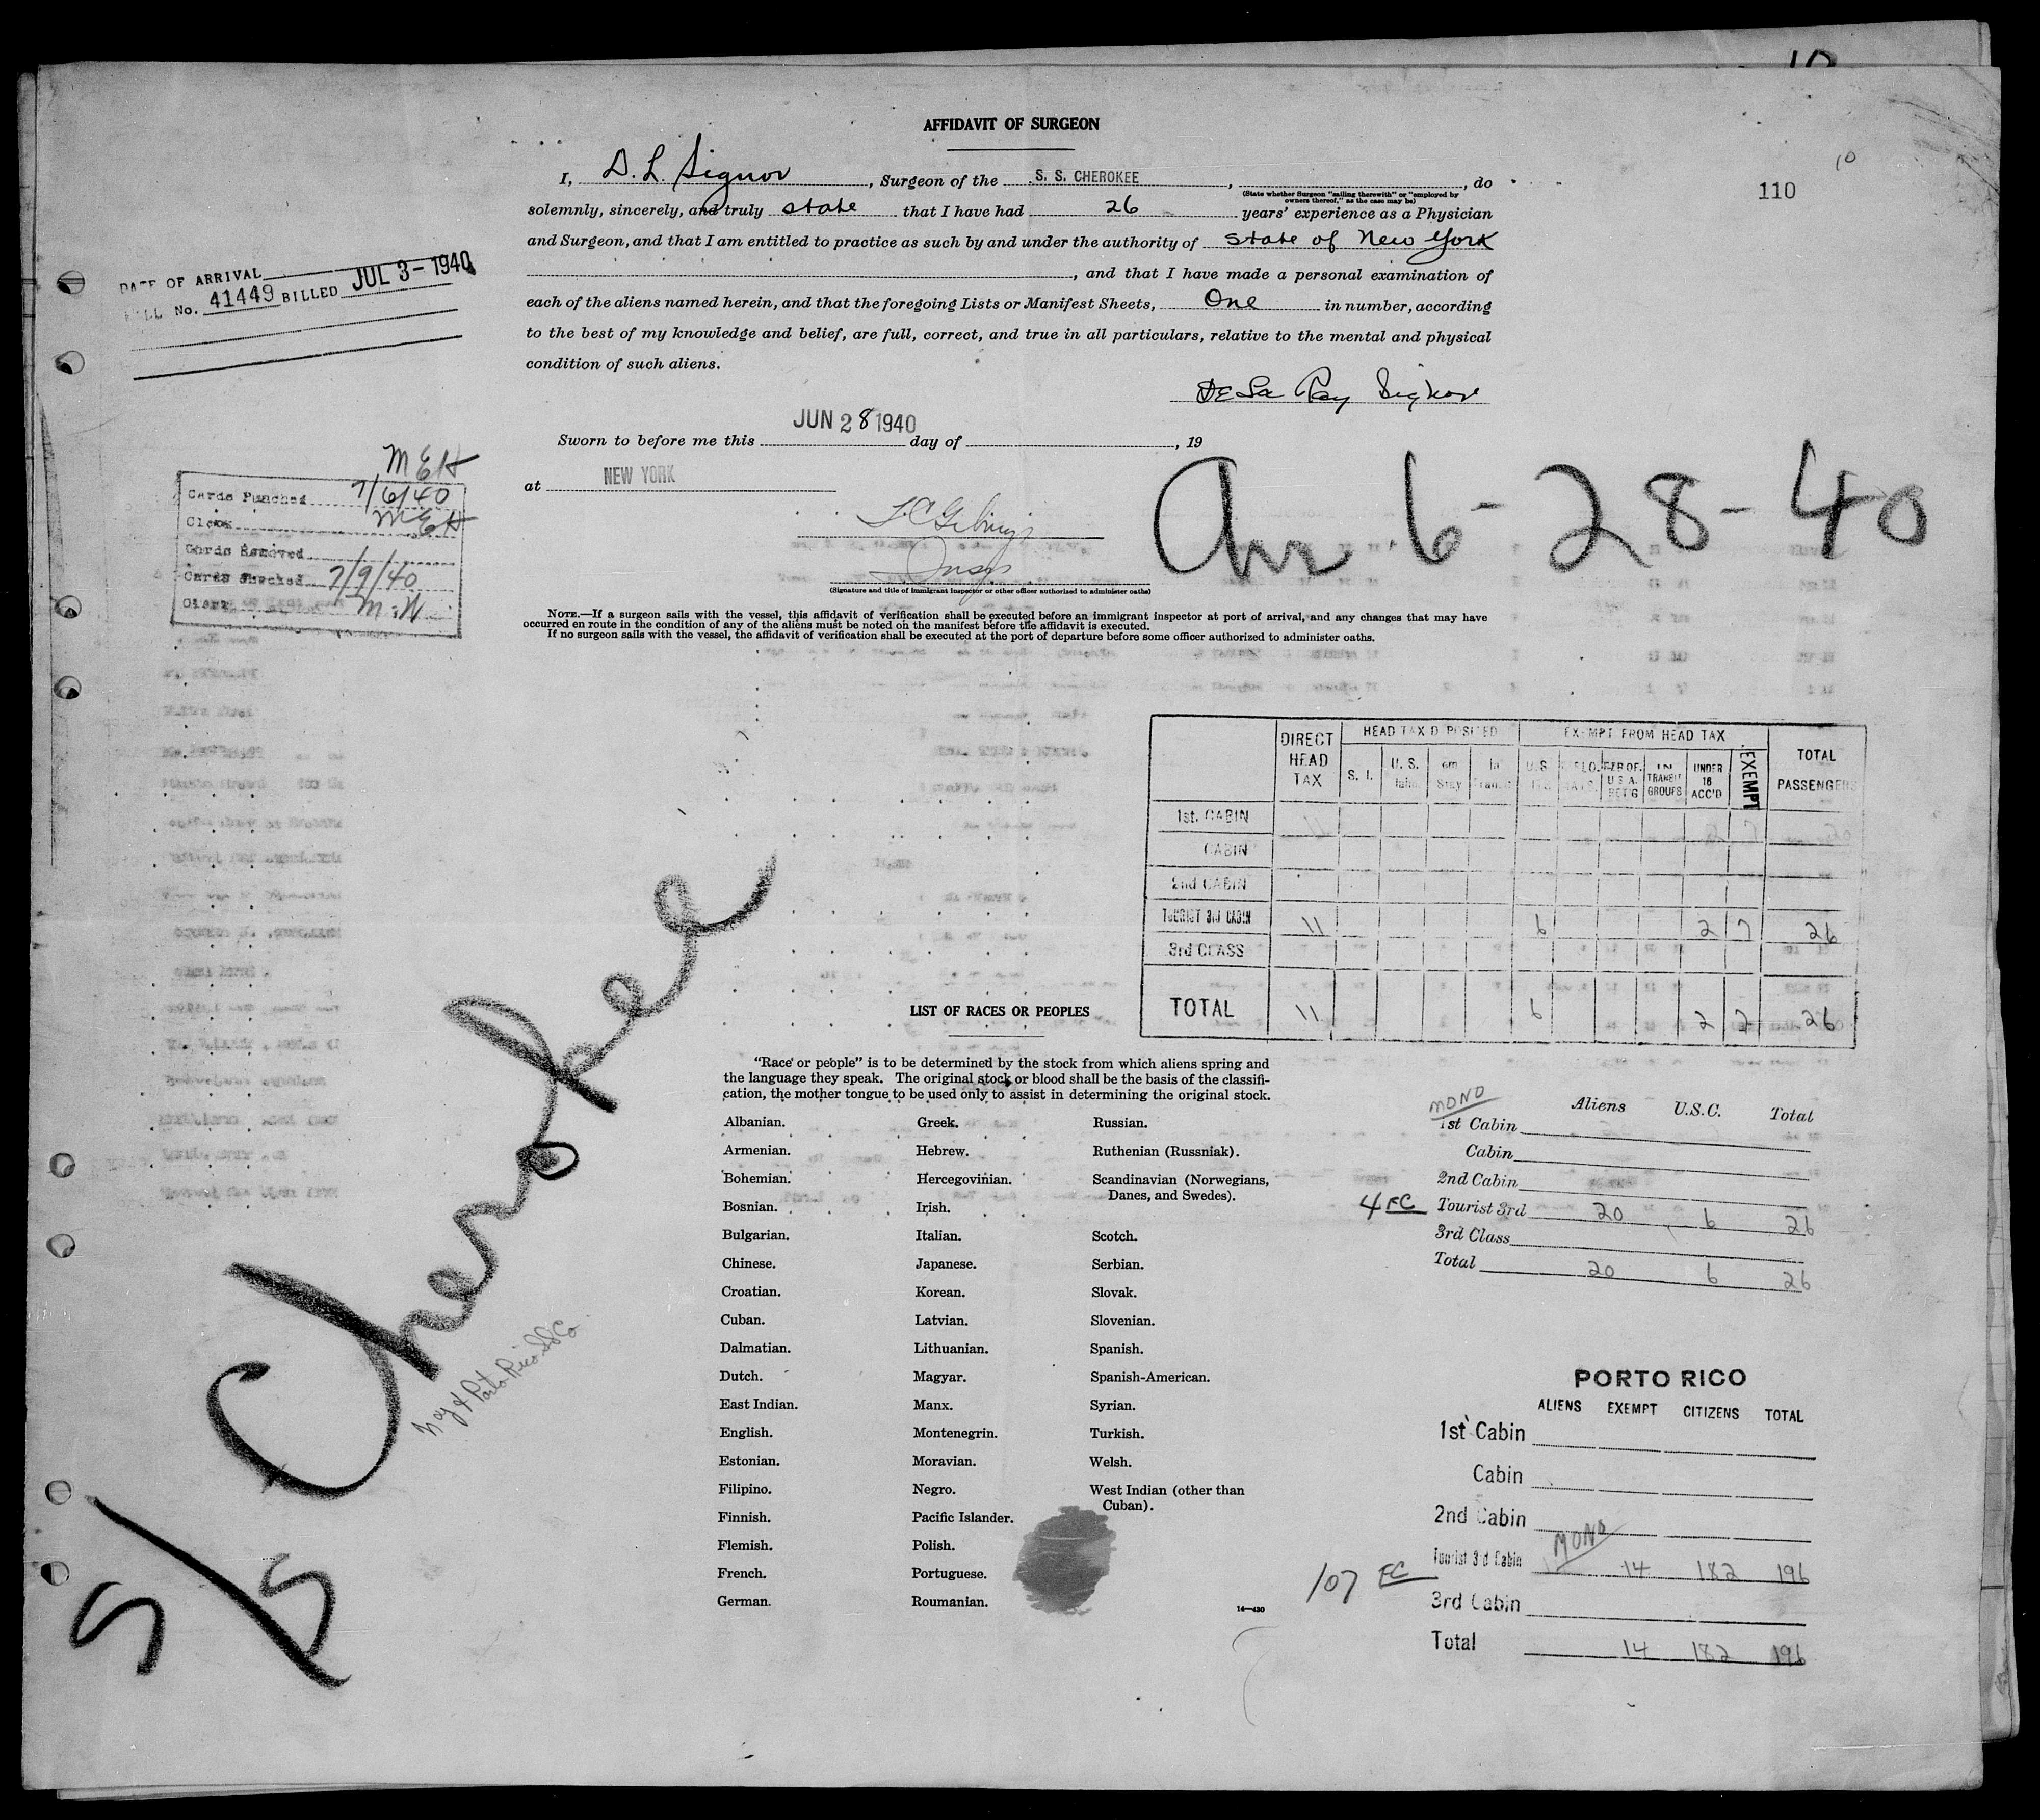 10
AFFIDAVIT OF SURGEON
10
110
I, D. L. Signor, Surgeon of the S. S. CHEROKEE, , do
(State whether Surgeon "sailing therewith" or "employed by
owners thereof," as the case may be)
solemnly, sincerely, and truly state that I have had 26 years' experience as a Physician
and Surgeon, and that I am entitled to practice as such by and under the authority of State of New York
, and that I have made a personal examination of
each of the aliens named herein, and that the foregoing Lists or Manifest Sheets, One in number, according
to the best of my knowledge and belief, are full, correct, and true in all particulars, relative to the mental and physical
condition of such aliens.
DATE OF ARRIVAL
BILL No. 41449 BILLED JUL 3 - 1940
Signor
Sworn to before me this JUN 28 1940 day of , 19
at NEW YORK
Insp.
(Signature and title of immigrant inspector or other officer authorized to administer oaths)
Arr 6-28-40
MEH
Cards Punched 7/6/40
Clerk MEH
Cards Removed
Cards Checked 7/9/40
Clerk M.W.
NOTE.—If a surgeon sails with the vessel, this affidavit of verification shall be executed before an immigrant inspector at port of arrival, and any changes that may have
occurred en route in the condition of any of the aliens must be noted on the manifest before the affidavit is executed.
If no surgeon sails with the vessel, the affidavit of verification shall be executed at the port of departure before some officer authorized to administer oaths.
DIRECT HEAD TAX HEAD TAX DEPOSITED EXEMPT FROM HEAD TAX TOTAL PASSENGERS
S. I. U. S. In U.S. U.S.A. TRANSIT GROUPS UNDER 16 ACC'D EXEMPT
1st. CABIN
CABIN
2nd CABIN
TOURIST 3rd CABIN 11 6 2 7 26
3rd CLASS
TOTAL 11 6 2 7 26
S/S Cherokee
N.Y. & Porto Rico SS Co
LIST OF RACES OR PEOPLES
"Race or people" is to be determined by the stock from which aliens spring and
the language they speak. The original stock or blood shall be the basis of the classifi-
cation, the mother tongue to be used only to assist in determining the original stock.
Albanian. Greek. Russian.
Armenian. Hebrew. Ruthenian (Russniak).
Bohemian. Hercegovinian. Scandinavian (Norwegians,
Danes, and Swedes).
Bosnian. Irish.
Bulgarian. Italian. Scotch.
Chinese. Japanese. Serbian.
Croatian. Korean. Slovak.
Cuban. Latvian. Slovenian.
Dalmatian. Lithuanian. Spanish.
Dutch. Magyar. Spanish-American.
East Indian. Manx. Syrian.
English. Montenegrin. Turkish.
Estonian. Moravian. Welsh.
Filipino. Negro. West Indian (other than
Cuban).
Finnish. Pacific Islander.
Flemish. Polish.
French. Portuguese.
German. Roumanian.
14—430
MONO Aliens U.S.C. Total
1st Cabin
Cabin
2nd Cabin
4 FC Tourist 3rd 20 6 26
3rd Class
Total 20 6 26
PORTO RICO
ALIENS EXEMPT CITIZENS TOTAL
1st Cabin
Cabin
2nd Cabin
MONO
107 FC Tourist 3rd Cabin 14 182 196
3rd Cabin
Total 14 182 196